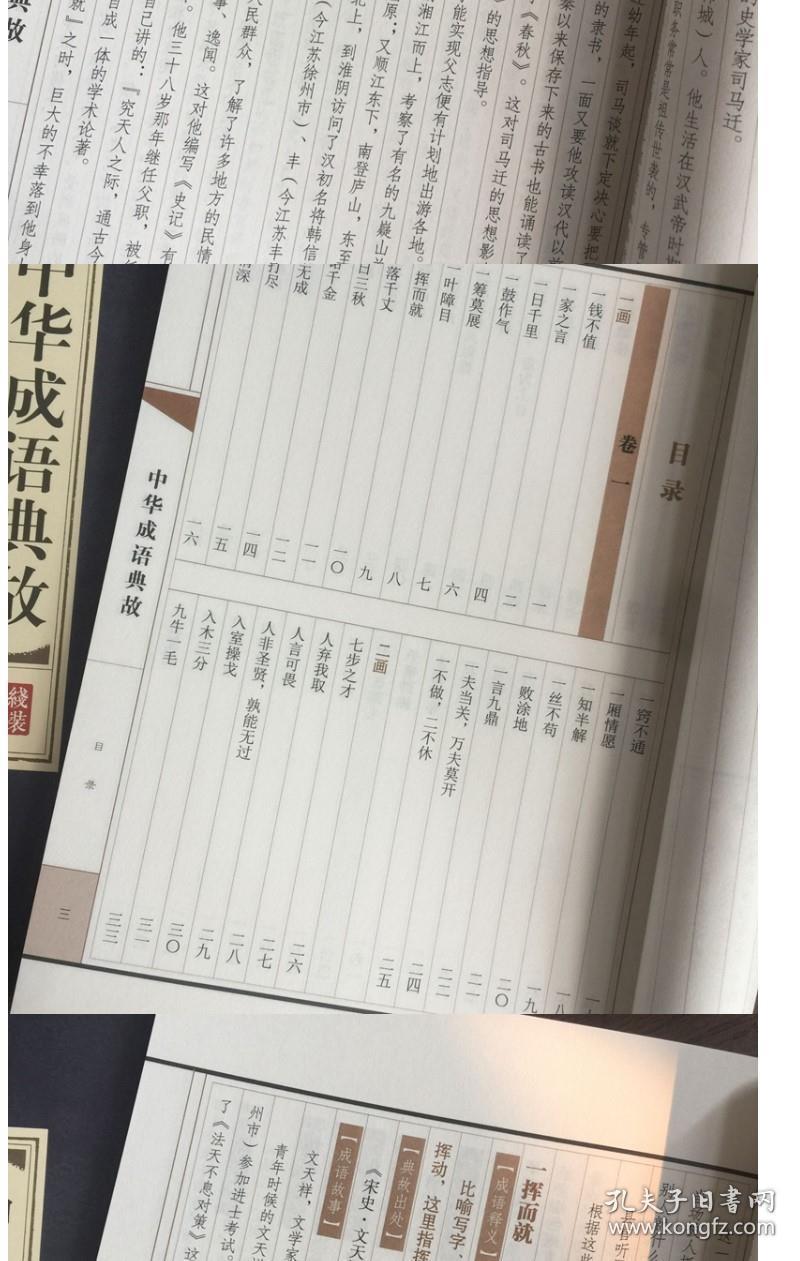 的史学家司马迁。
韩城）人。他生活在汉武帝时
职务常常是祖传世袭的，专管
幼年起，司马谈就下定决心要把
的隶书，一面又要他攻读汉代以前
秦以来保存下来的古书也能诵读了
《春秋》。这对司马迁的思想影
的思想指导。
能实现父志便有计划地出游各地。
湘江而上，考察了有名的九嶷山
原；又顺江东下，南登庐山，东至
北上，到淮阴访问了汉初名将韩信
（今江苏徐州市）、丰（今江苏丰
人民群众，了解了许多地方的民情
事、逸闻。这对他编写《史记》有
。他三十八岁那年继任父职，被
自己讲的：『究天人之际，通古今
自成一体的学术论著。
就』之时，巨大的不幸落到他身
典故
中华成语典故
线装
目录
卷一
一画
一钱不值 一
一家之言 二
一日千里 四
一鼓作气 六
一筹莫展 七
一叶障目 八
挥而就 九
落千丈 一〇
日三秋 一一
千金 一二
无成 一四
打尽 一五
深 一六
中华成语典故
目录
三
一窍不通
一厢情愿 一八
一知半解 一九
一丝不苟 二〇
一败涂地 二一
一言九鼎 二二
一夫当关，万夫莫开 二四
一不做，二不休 二五
二画
七步之才 二六
人弃我取 二七
人言可畏 二八
人非圣贤，孰能无过 二九
入室操戈 三〇
入木三分 三二
九牛一毛 三三
根据这些
一挥而就
【成语释义】
比喻写字、
挥动，这里指挥
【典故出处】
《宋史·文天
【成语故事】
文天祥，文学家
青年时候的文天祥
州市）参加进士考试。
了《法天不息对策》这
孔夫子旧书网
www.kongfz.com